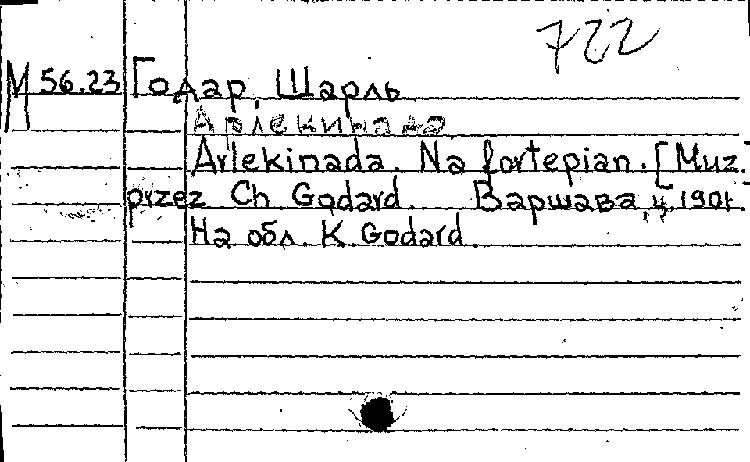 722
М 56.23 Годар, Шарль
Арлекинада
Arlekinada. Na fortepian. [Muz.
przez Ch Godard. Варшава, ц. 190 г.
На обл. K. Godard.